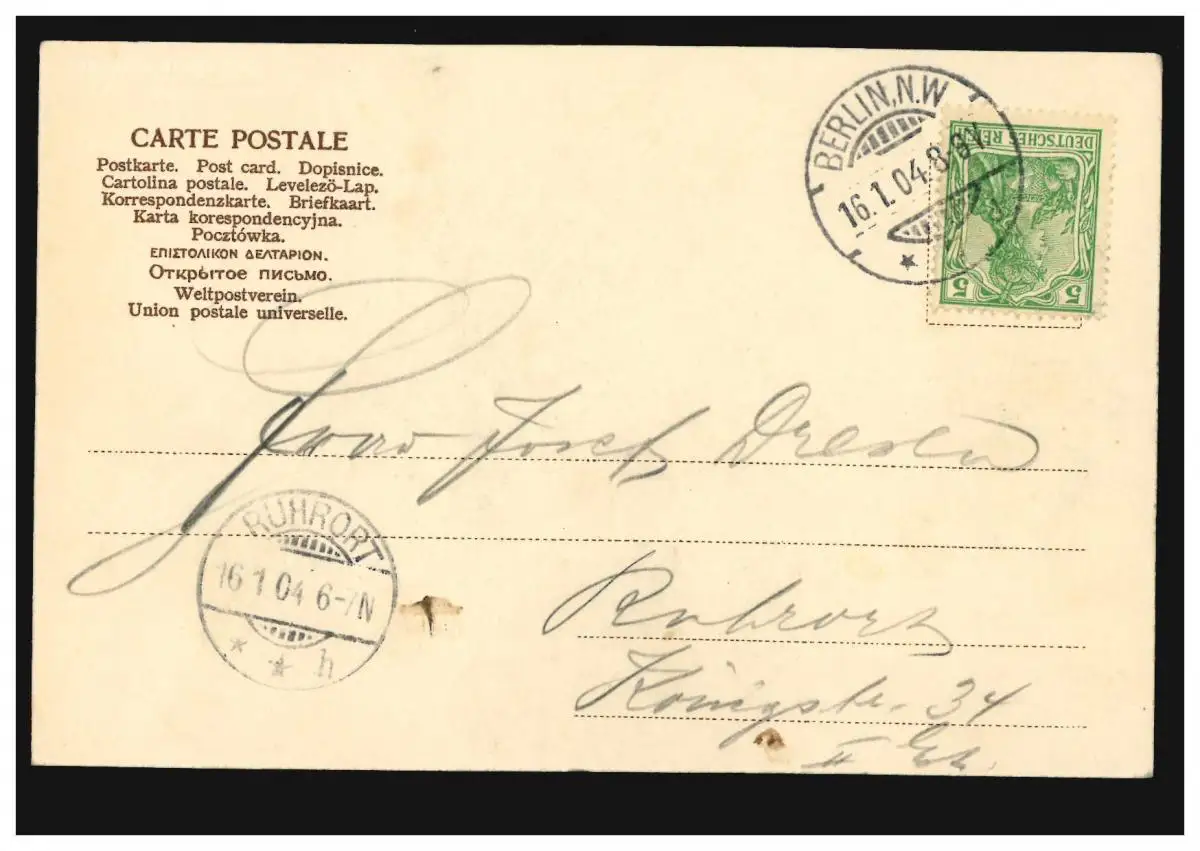 CARTE POSTALE
Postkarte. Post card. Dopisnice.
Cartolina postale. Levelezö-Lap.
Korrespondenzkarte. Briefkaart.
Karta korespondencyjna.
Pocztówka.
ΕΠΙΣΤΟΛΙΚΟΝ ΔΕΛΤΑΡΙΟΝ.
Открытое письмо.
Weltpostverein.
Union postale universelle.
BERLIN,N.W
16.1.04.8-9V.
DEUTSCHES REICH
5 5
Frau Josef Dresen
RUHRORT
16 1 04 6-7N
* * h
Ruhrort
Königstr. 34
II Et.